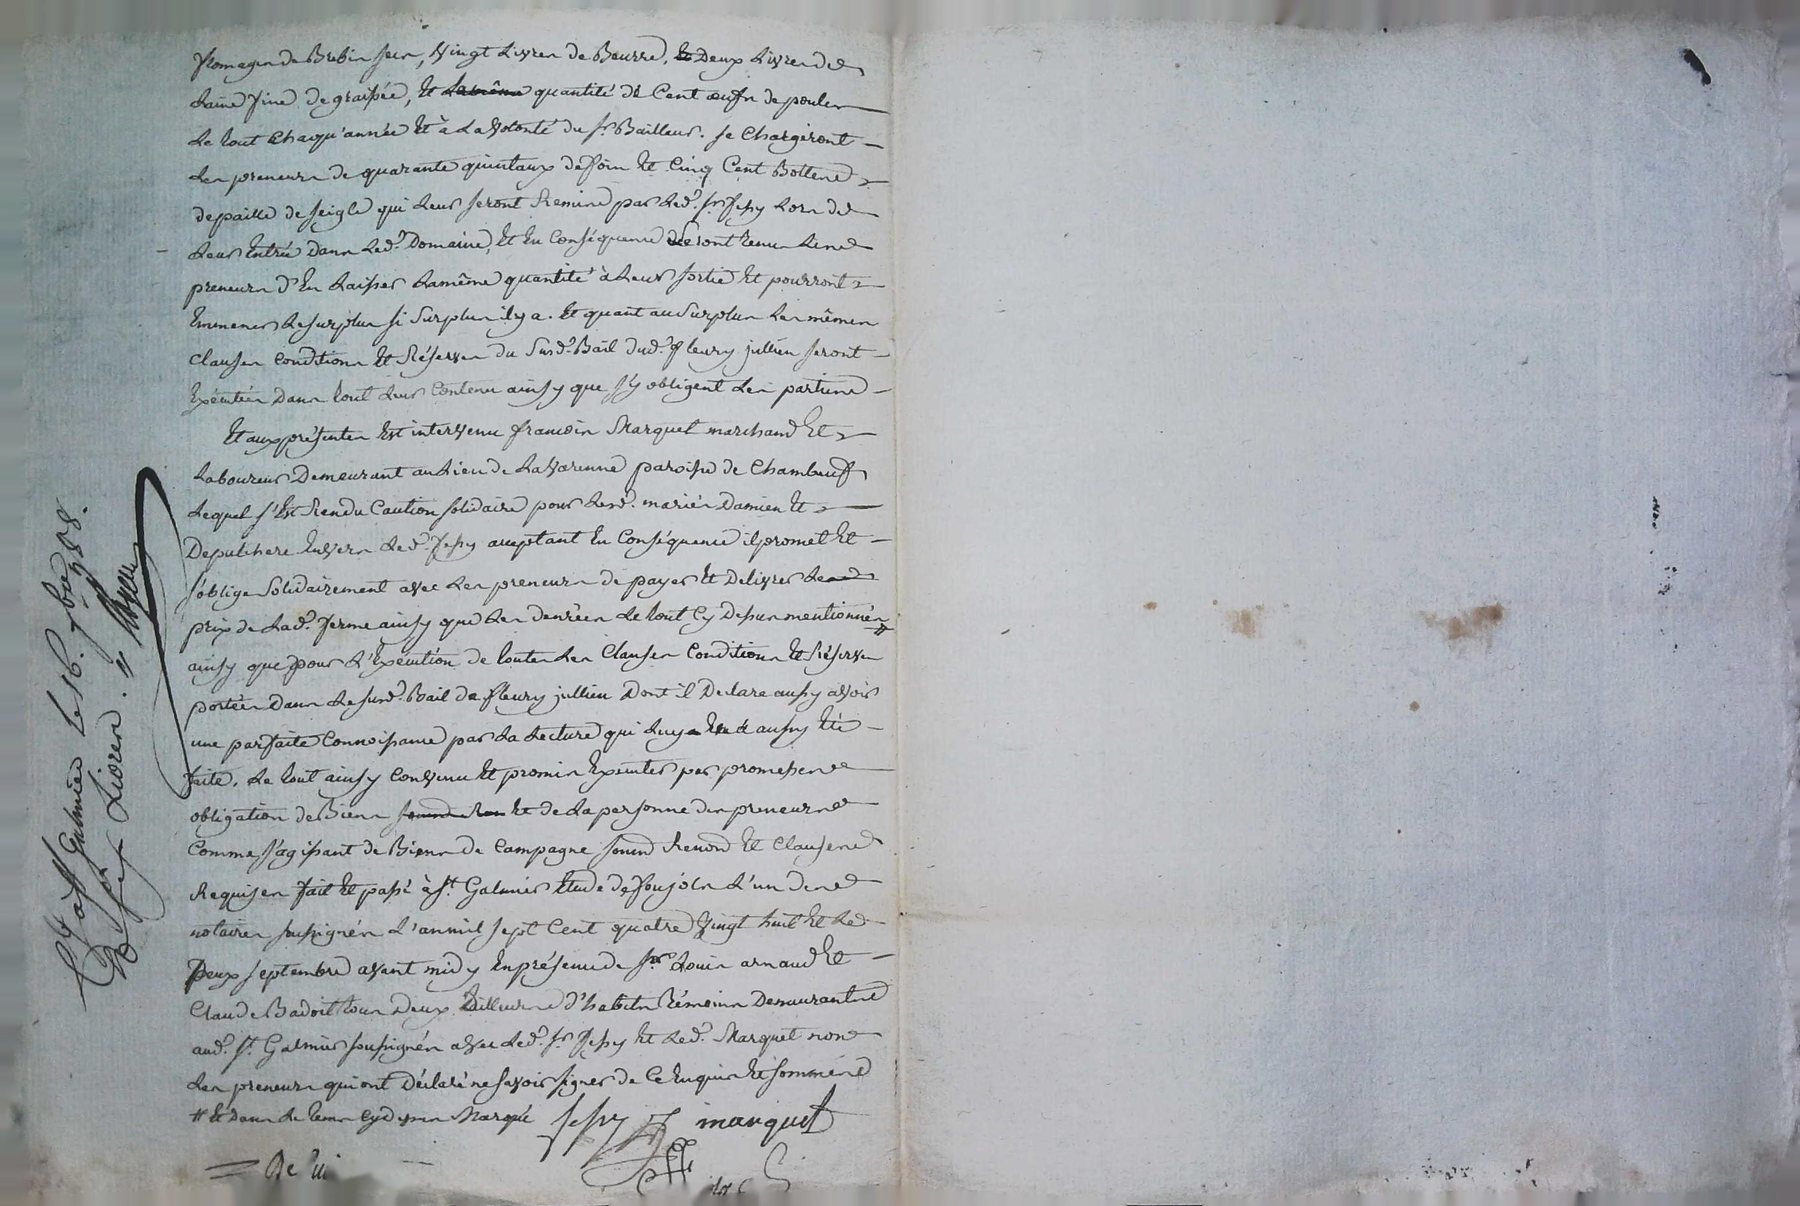 fromages de Brebis secs, vingt Livres de Beurre, Deux Livres de
Laine fine degraissée, Et la même quantité de Cent œufs de poules
Le tout Chaqu'année Et à La Volonté du Sr Bailleur. se Chargeront
Les preneurs de quarante quintaux de foin Et Cinq Cent Bottes
de paille de seigle qui Leur seront Remis par Led. Sr Jessy Lors de
Leur Entrée Dans Led. Domaine, Et En Conséquence seront tenus Les
preneurs d'En Laisser La même quantité à Leur sortie Et pourront
Emmener Le surplus si surplus il y a. Et quant au Surplus Les mêmes
Clauses Conditions Et Réserves du Susd. Bail dud. fleury jullien seront
Exécutées Dans tout Leur Contenu ainsy que s'y obligent Les parties
Et aux présentes Est intervenu francois Marquet marchand Et
Laboureur Demeurant au Lieu de La Varenne paroisse de Chambeuf
Lequel s'Est Rendu Caution solidaire pour Lesd. mariés Damien Et
Envers Led. Jessy acceptant En Conséquence il promet Et
s'oblige Solidairement avec Les preneurs de payer Et Delivrer Le
prix de Lad. ferme ainsy que Les denrées Le tout Cy Dessus mentionnés
ainsy que pour L'Execution de toutes Les Clauses Conditions Et Réserves
portées Dans Le susd. Bail de fleury jullien Dont il Declare aussy avoir
une parfaite Connoissance par La Lecture qui Luy a aussy Eté
faite. Le tout ainsy Convenu Et promis Exécuter par promesses
obligation de Biens Et de La personne des preneurs
Comme s'agissant de Biens de Campagne soumis Renon Et Clauses
Requises fait Et passé à St. Galmier Etude de foujols L'un des
notaires soussignés L'an mil sept Cent quatre Vingt huit Et Le
Deux septembre avant midy En présence de Sr Louis arnaud Et
Claude Badoit tous Deux tailleurs d'habits Témoins Demeurants
aud. St. Galmier soussignés avec Led. Sr Jessy Et Led. Marquet non
Les preneurs qui ont Déclaré ne savoir signer de Ce Enquis Et sommés
# Et Dans Le tems Cy dessus Marqué
Jessy marquet
Cllé à St Galmier Le 16. 7bre 1788.